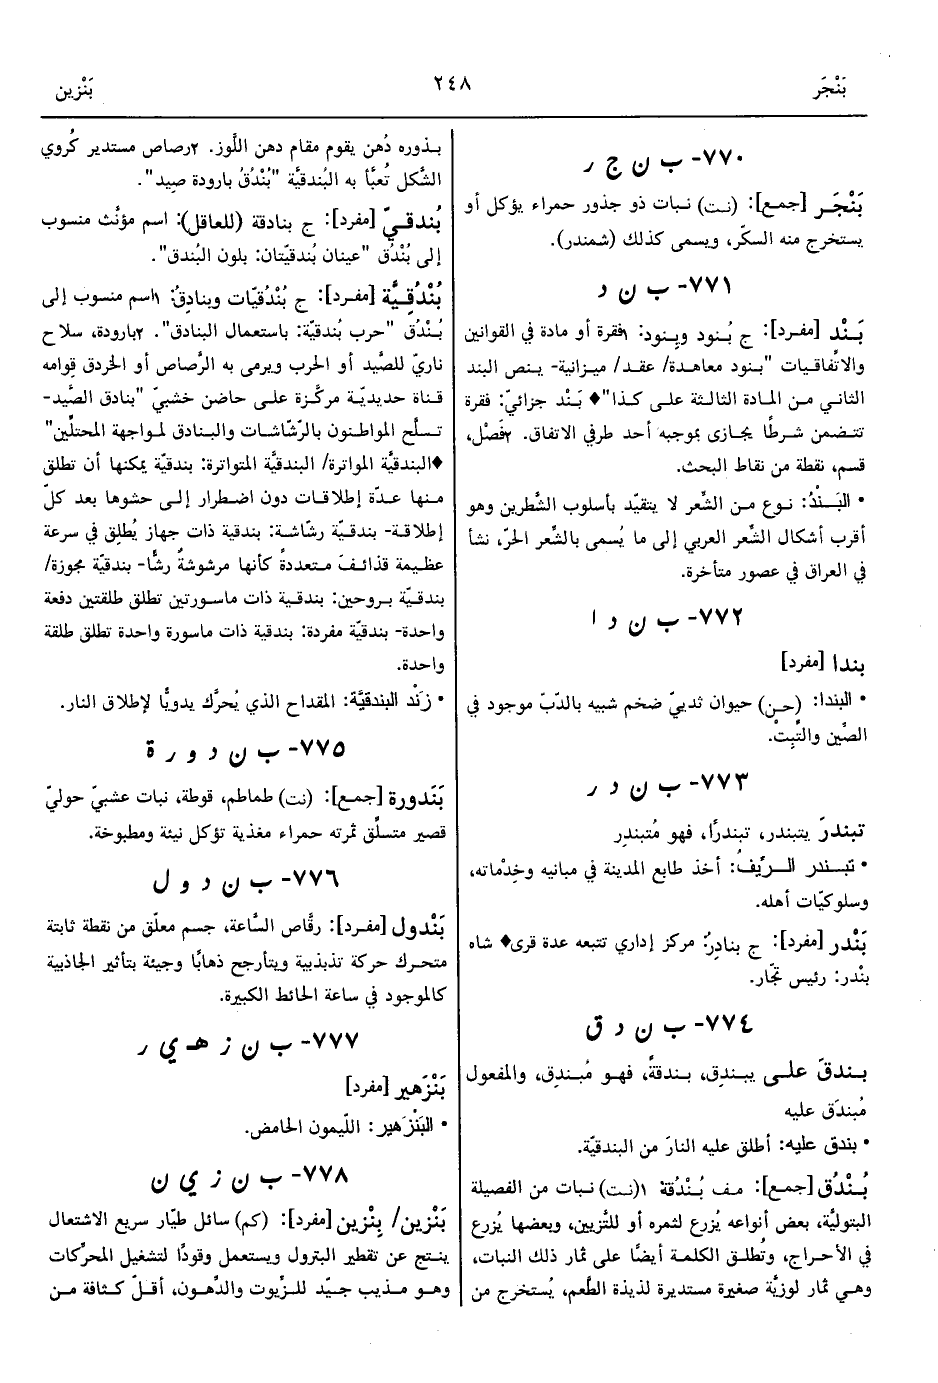 بَنْجَر
٢٤٨
بَنْزين
٧٧٠- ب ن ج ر
بَنْجَر [جمع]: (نت) نبات ذو جذور حمراء يؤكل أو
يستخرج منه السكّر، ويسمى كذلك (شمندر).
٧٧١- ب ن د
بَنْد [مفرد]: ج بُنود وبِنود: ١فقرة أو مادة في القوانين
والاتِّفاقيات "بنود معاهدة/ عقد/ ميزانية- ينص البند
الثاني من المادة الثالثة على كذا"♦ بَنْد جزائيّ: فقرة
تتضمن شرطًا يجازى بموجبه أحد طرفي الاتفاق. ٢فَصْل،
قسم، نقطة من نقاط البحث.
• البَنْدُ: نوع من الشِّعر لا يتقيّد بأسلوب الشَّطرين وهو
أقرب أشكال الشِّعر العربي إلى ما يُسمى بالشِّعر الحرّ، نشأ
في العراق في عصور متأخرة.
٧٧٢- ب ن د ا
بندا [مفرد]
• البندا: (حن) حيوان ثدييّ ضخم شبيه بالدّبّ موجود في
الصِّين والتِّبِتْ.
٧٧٣- ب ن د ر
تبندرَ يتبندر، تبندرًا، فهو مُتبندِر
• تبندر الرِّيفُ: أخذ طابع المدينة في مبانيه وخِدْماته،
وسلوكيّات أهله.
بَنْدر [مفرد]: ج بنادرُ: مركز إداري تتبعه عدة قرى♦ شاه
بندر: رئيس تجّار.
٧٧٤- ب ن د ق
بندقَ على يبندِق، بندقةً، فهو مُبندِق، والمفعول
مُبندَق عليه
• بندق عليه: أطلق عليه النارَ من البندقيّة.
بُنْدُق [جمع]: مف بُنْدُقة ١(نت) نبات من الفصيلة
البتوليَّة، بعض أنواعه يُزرع لثمره أو للتَّزيين، وبعضها يُزرع
في الأحراج، وتُطلق الكلمة أيضًا على ثمار ذلك النبات،
وهي ثمار لوزيَّة صغيرة مستديرة لذيذة الطَّعم، يُستخرج من
بذوره دُهن يقوم مقام دهن اللَّوز. ٢رصاص مستدير كُروي
الشَّكل تُعبَّأ به البُندقيَّة "بُنْدُق بارودة صيد".
بُندقيّ [مفرد]: ج بنادقة (للعاقل): اسم مؤنَّث منسوب
إلى بُنْدُق "عينان بُندقيّتان: بلون البُندق".
بُنْدُقِيَّة [مفرد]: ج بُنْدُقيّات وبنادِقُ: ١اسم منسوب إلى
بُنْدُق "حرب بُندقيّة: باستعمال البنادق". ٢بارودة، سلاح
ناريّ للصَّيد أو الحرب ويرمى به الرَّصاص أو الخردق قِوامه
قناة حديديّة مركَّزة على حاضن خشبيّ "بنادق الصَّيد-
تسلَّح المواطنون بالرَّشّاشات والبنادق لمواجهة المحتلّين"
♦البندقيَّة المواترة/ البندقيَّة المتواترة: بندقيّة يمكنها أن تطلق
منها عدّة إطلاقات دون اضطرار إلى حشوها بعد كلّ
إطلاقة- بندقيّة رشّاشة: بندقية ذات جهاز يُطلِق في سرعة
عظيمة قذائفَ متعددة كأنها مرشوشةً رشًّا- بندقيّة مجوزة/
بندقيّة بروحين: بندقية ذات ماسورتين تطلق طلقتين دفعة
واحدة- بندقيّة مفردة: بندقية ذات ماسورة واحدة تطلق طلقة
واحدة.
• زَنْد البندقيَّة: المقداح الذي يُحرَّك يدويًّا لإطلاق النار.
٧٧٥- ب ن د و ر ة
بَنَدورة [جمع]: (نت) طماطم، قوطة، نبات عشبيّ حوليّ
قصير متسلِّق ثمرته حمراء مغذية تؤكل نيئة ومطبوخة.
٧٧٦- ب ن د و ل
بَنْدول [مفرد]: رقَّاص السَّاعة، جسم معلّق من نقطة ثابتة
متحرك حركة تذبذبية ويتأرجح ذهابًا وجيئة بتأثير الجاذبية
كالموجود في ساعة الحائط الكبيرة.
٧٧٧- ب ن ز هـ ي ر
بَنْزَهير [مفرد]
• البَنْزَهير: اللّيمون الحامض.
٧٧٨- ب ن ز ي ن
بَنْزين/ بِنْزين [مفرد]: (كم) سائل طيّار سريع الاشتعال
ينتج عن تقطير البترول ويستعمل وقودًا لتشغيل المحرِّكات
وهو مذيب جيّد للزّيوت والدُّهون، أقلّ كثافة من